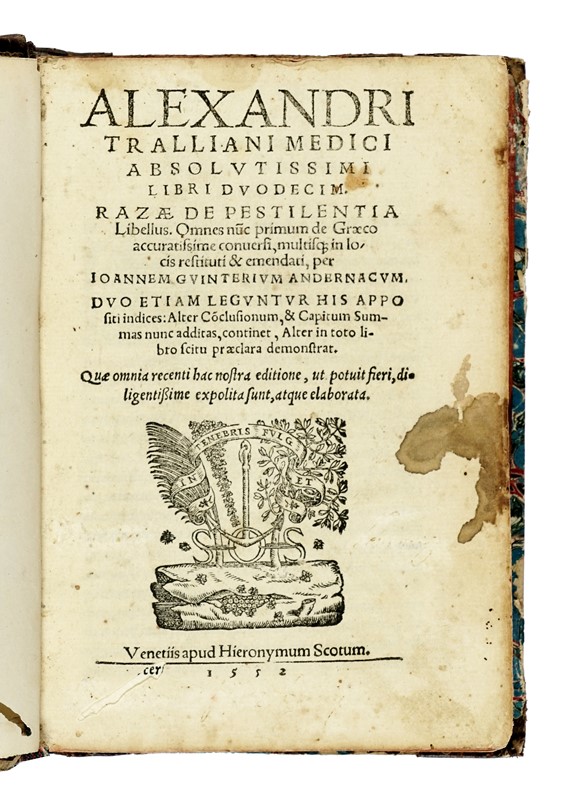 ALEXANDRI
TRALLIANI MEDICI
ABSOLVTISSIMI
LIBRI DVODECIM.
RAZÆ DE PESTILENTIA
Libellus. Omnes nūc primum de Græco
accuratissime conuersi, multisq; in lo-
cis restituti & emendati, per
IOANNEM GVINTERIVM ANDERNACVM.
DVO ETIAM LEGVNTVR HIS APPO
siti indices: Alter Cōclusionum, & Capitum Sum-
mas nunc additas, continet, Alter in toto li-
bro scitu præclara demonstrat.
Quæ omnia recenti hac nostra editione, ut potuit fieri, di-
ligentißime expolita sunt, atque elaborata.
IN TENEBRIS FVLG ET
SOS
Venetiis apud Hieronymum Scotum.
1552